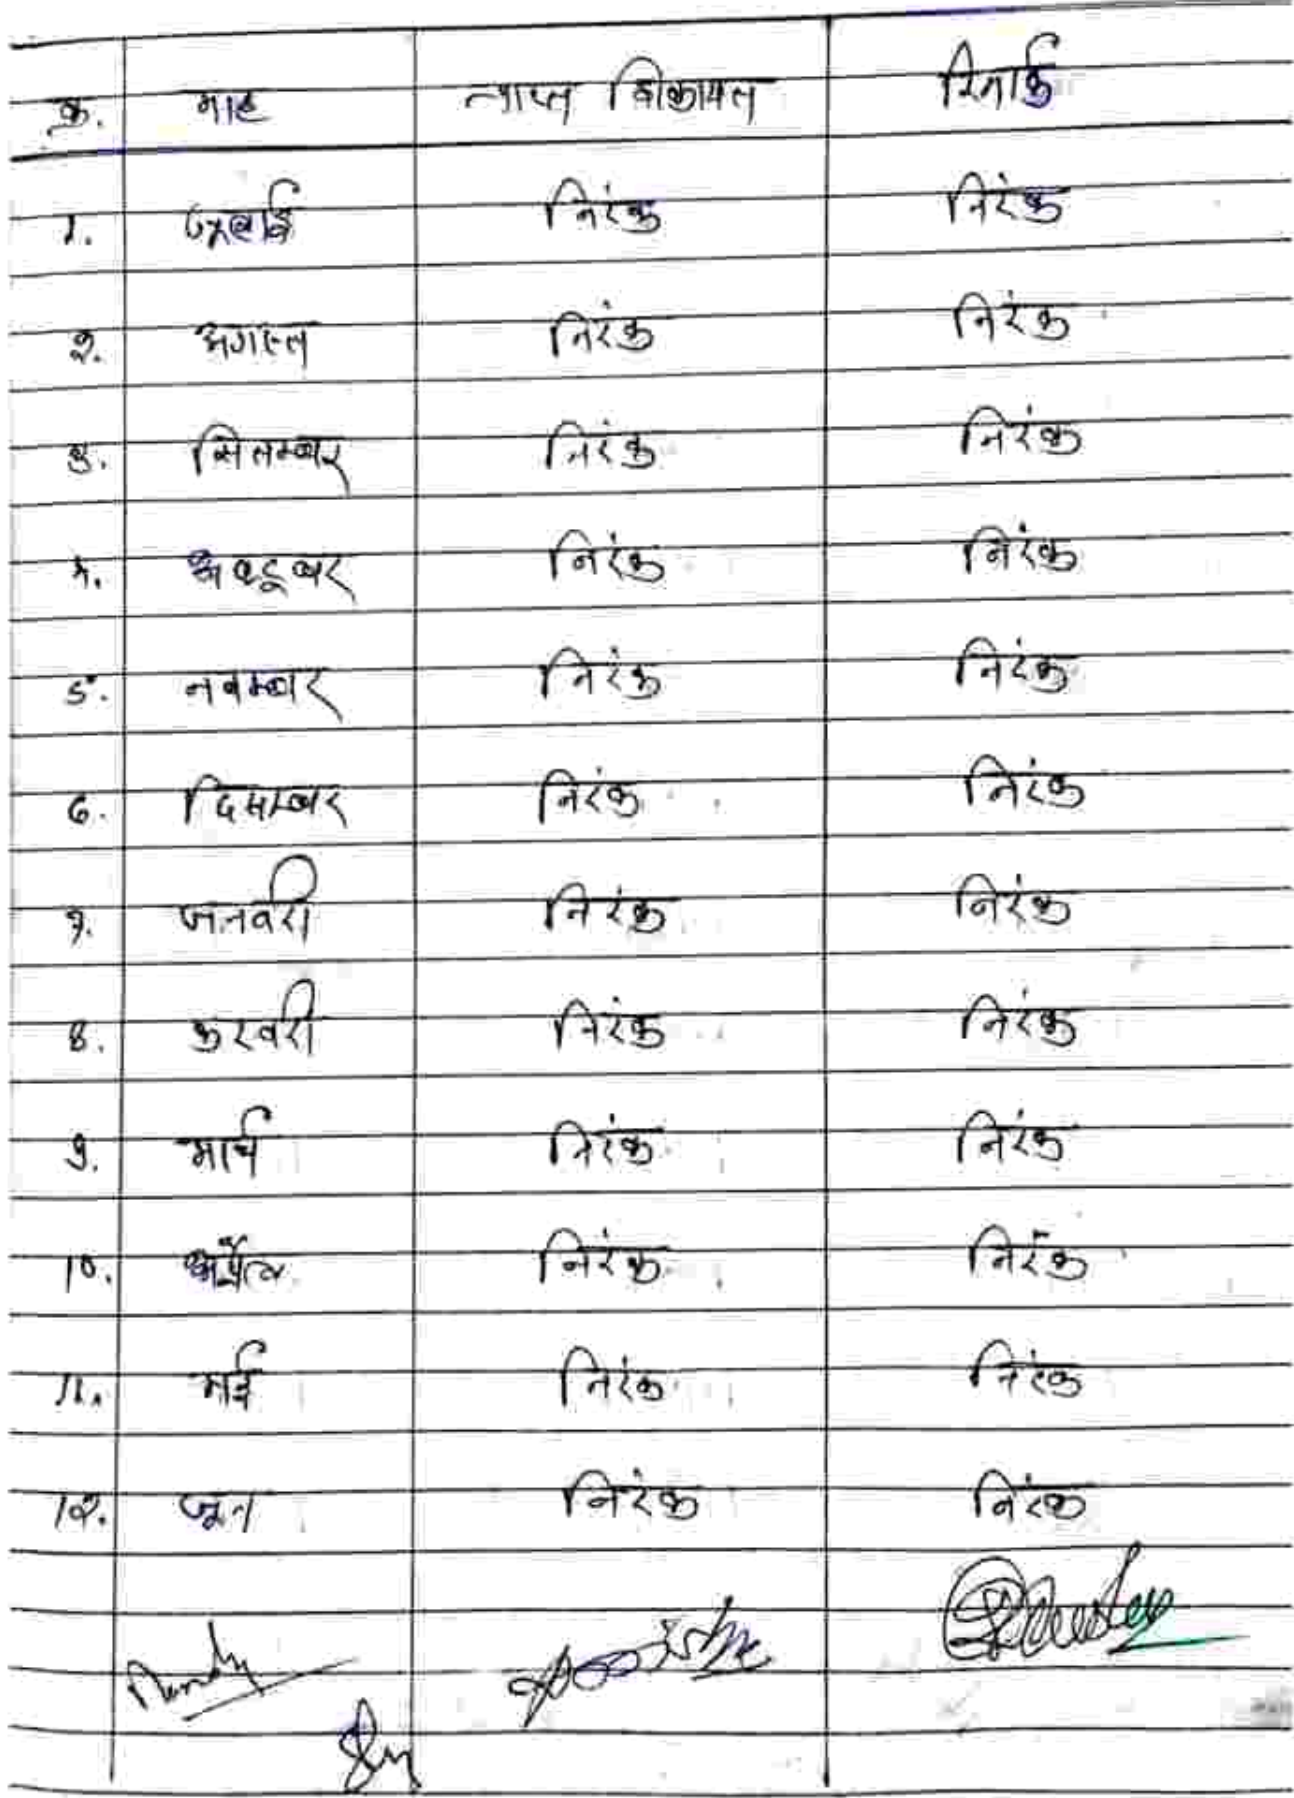 क्र. माह प्राप्त शिकायत रिमार्क
1. जुलाई निरंक निरंक
2. अगस्त निरंक निरंक
3. सितम्बर निरंक निरंक
4. अक्टूबर निरंक निरंक
5. नवम्बर निरंक निरंक
6. दिसम्बर निरंक निरंक
7. जनवरी निरंक निरंक
8. फरवरी निरंक निरंक
9. मार्च निरंक निरंक
10. अप्रैल निरंक निरंक
11. मई निरंक निरंक
12. जून निरंक निरंक